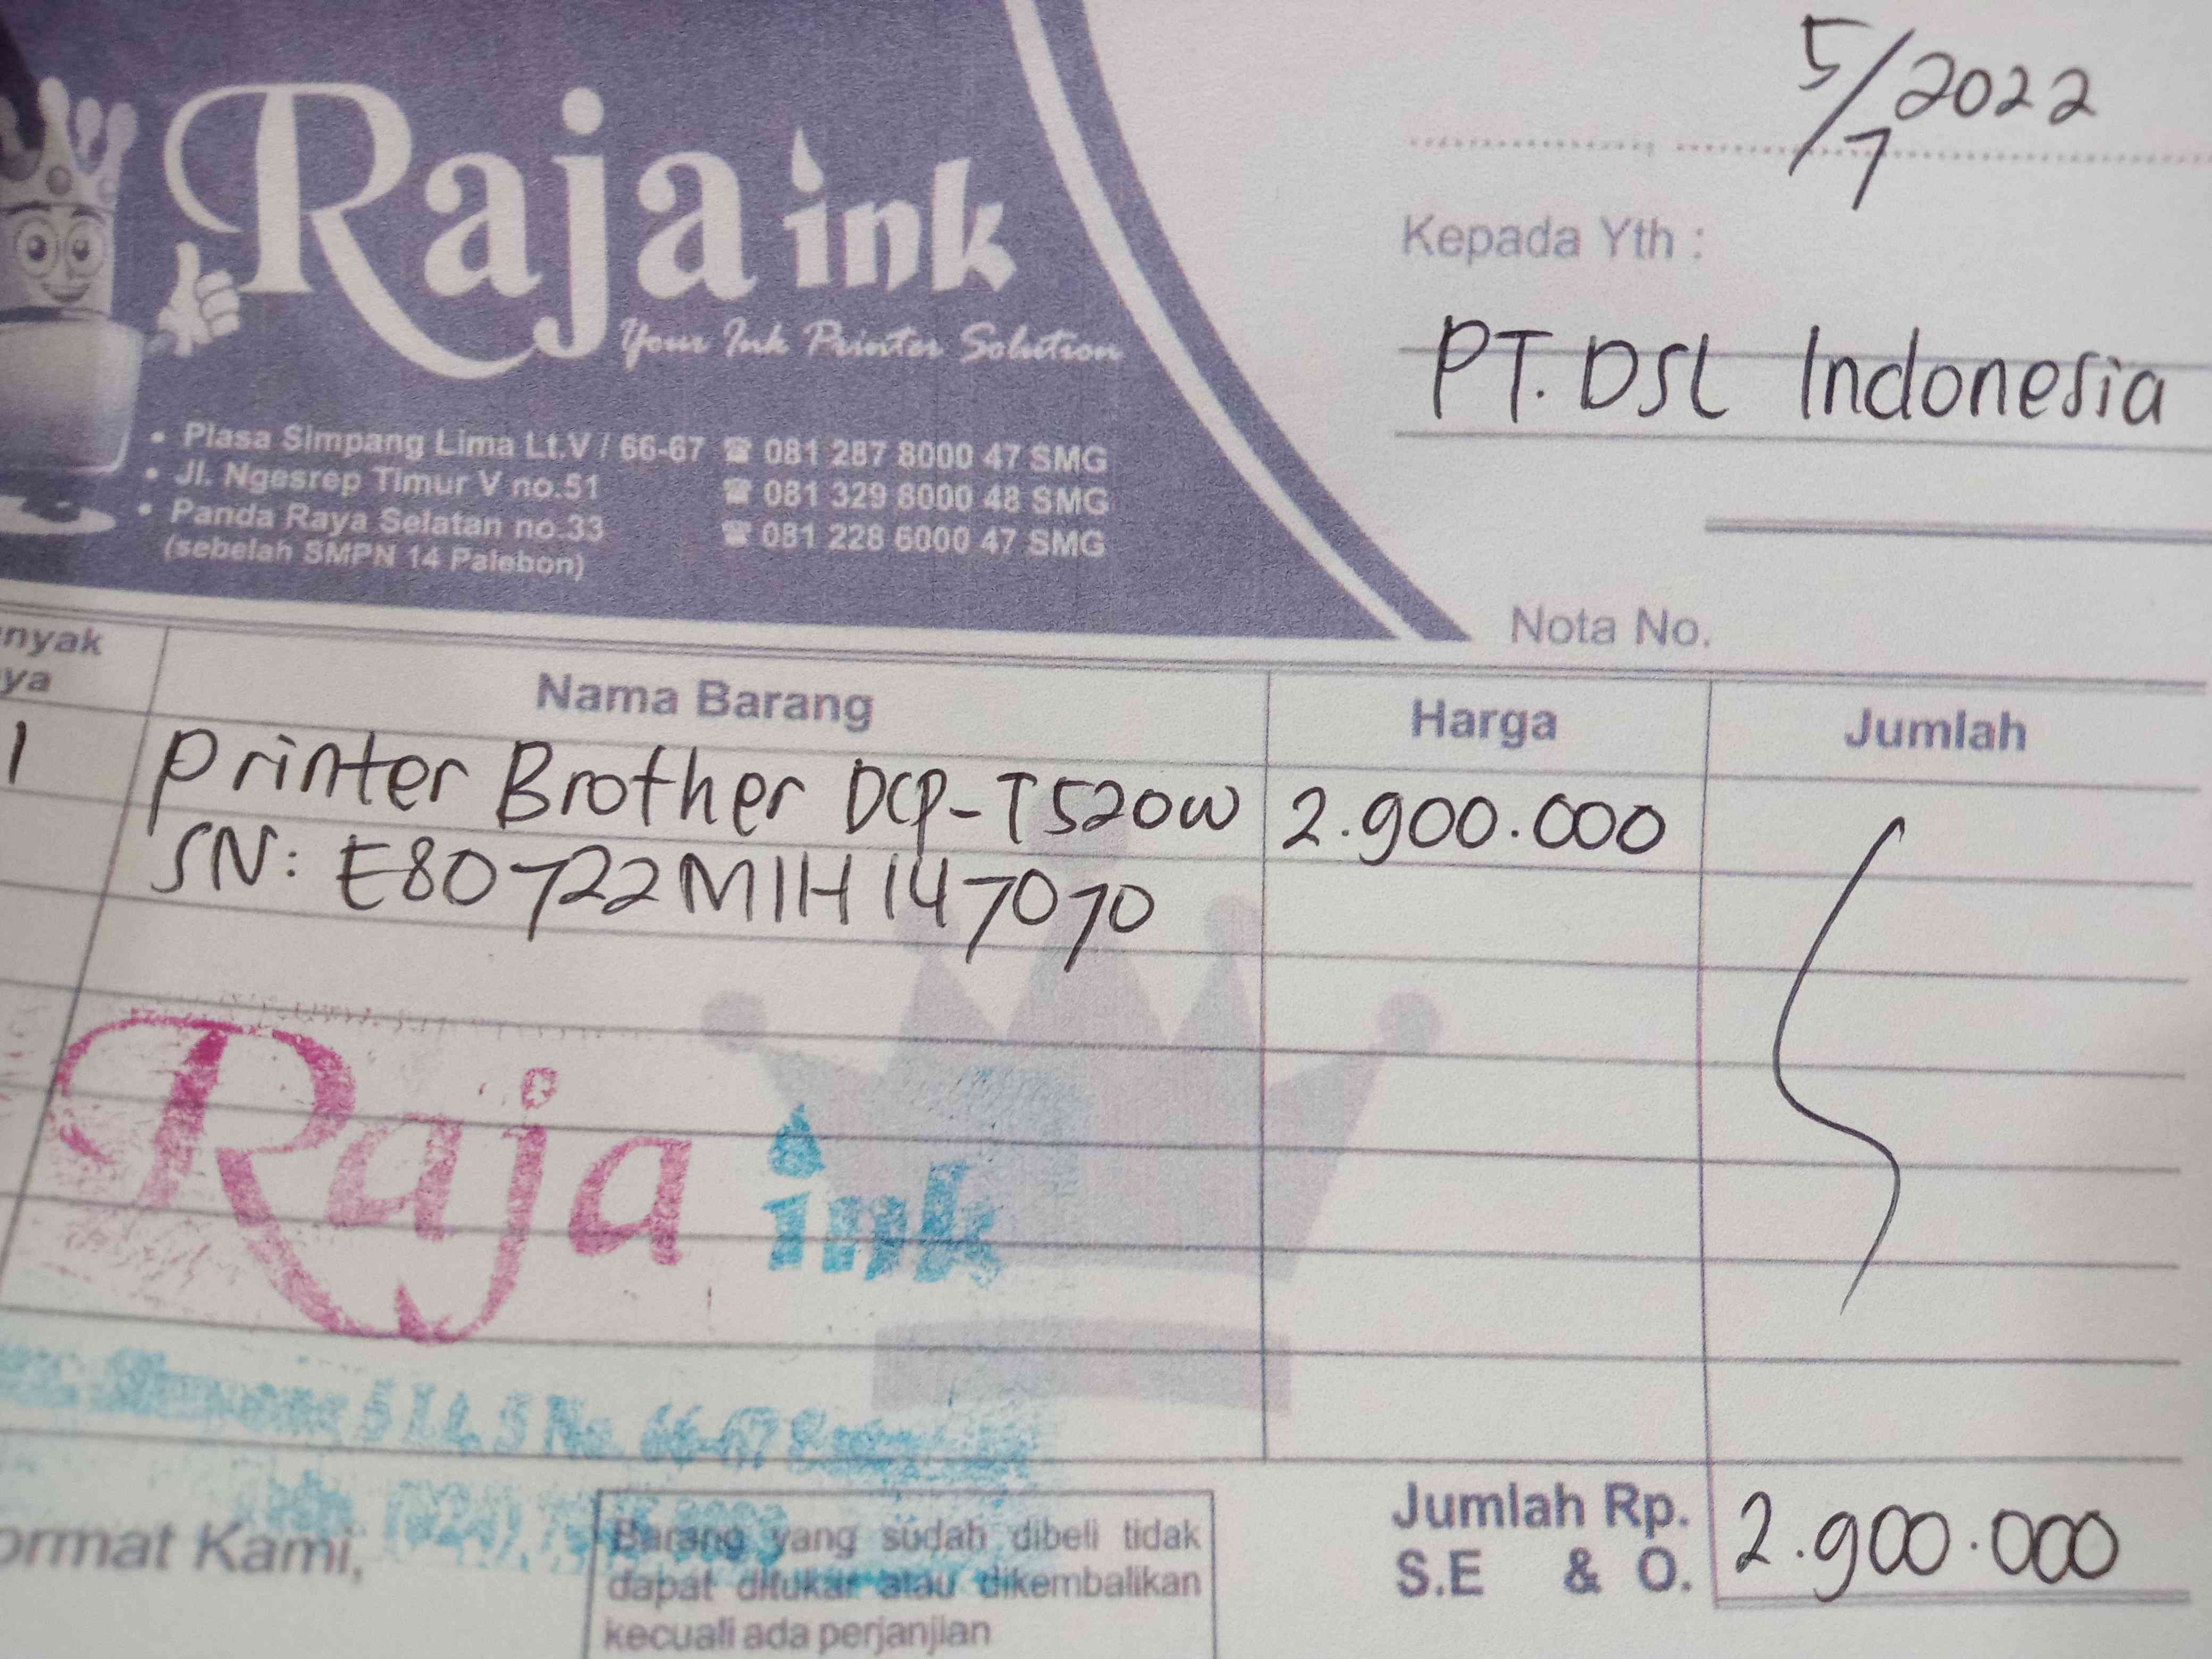 5/7 2022
Raja ink
Your Ink Printer Solution
Kepada Yth :
PT. DSL Indonesia
• Plasa Simpang Lima Lt.V / 66-67 ☎ 081 287 8000 47 SMG
• Jl. Ngesrep Timur V no.51 ☎ 081 329 8000 48 SMG
• Panda Raya Selatan no.33 ☎ 081 228 6000 47 SMG
(sebelah SMPN 14 Palebon)
Nota No.
nyak
ya
Nama Barang Harga Jumlah
1 Printer Brother DCP-T520W 2.900.000
SN: E80722M1H147070
Raja ink
5 Lt. 5 No. 66-67
(024)
ormat Kami,
Barang yang sudah dibeli tidak
dapat ditukar atau dikembalikan
kecuali ada perjanjian
Jumlah Rp. 2.900.000
S.E & O.